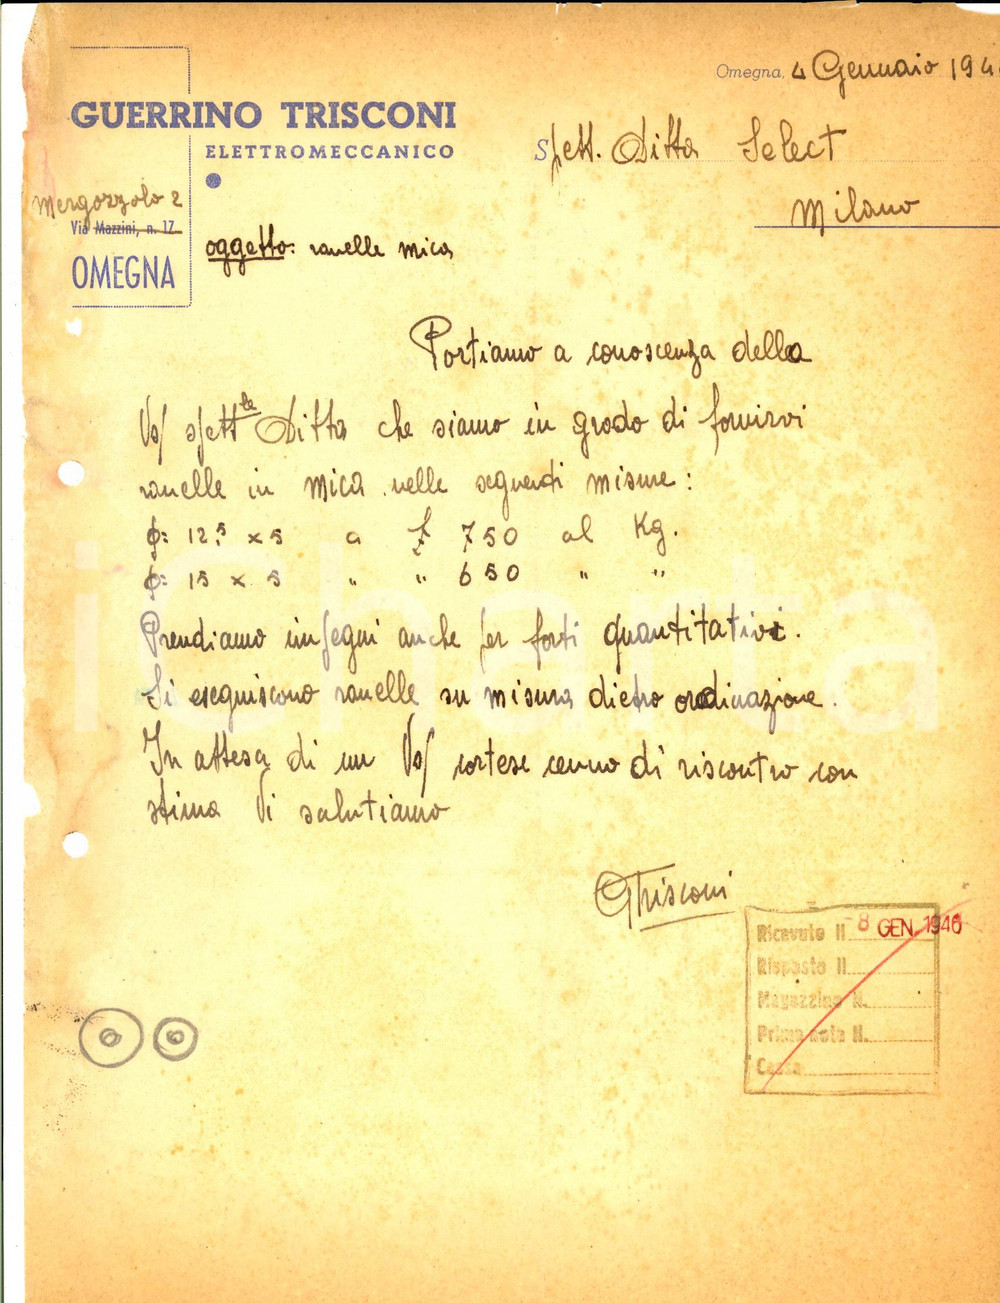 Omegna, 4 Gennaio 194
GUERRINO TRISCONI
ELETTROMECCANICO
Spett. Ditta Select
Milano
Mergozzolo 2
Via Mazzini, n. 17
OMEGNA
oggetto: ranelle mica
Portiamo a conoscenza della
Vs/ spett.le Ditta che siamo in grado di fornirvi
ranelle in mica nelle seguenti misure:
ϕ: 12,5 x 5 a £ 750 al Kg.
ϕ: 15 x 5 " " 650 " "
Prendiamo impegni anche per forti quantitativi.
Si eseguiscono ranelle su misura dietro ordinazione.
In attesa di un Vs/ cortese cenno di riscontro con
stima Vi salutiamo
GTrisconi
Ricevuto il -8 GEN. 1946
Risposto il
Magazzino N.
Prima nota N.
Cassa
iCharta